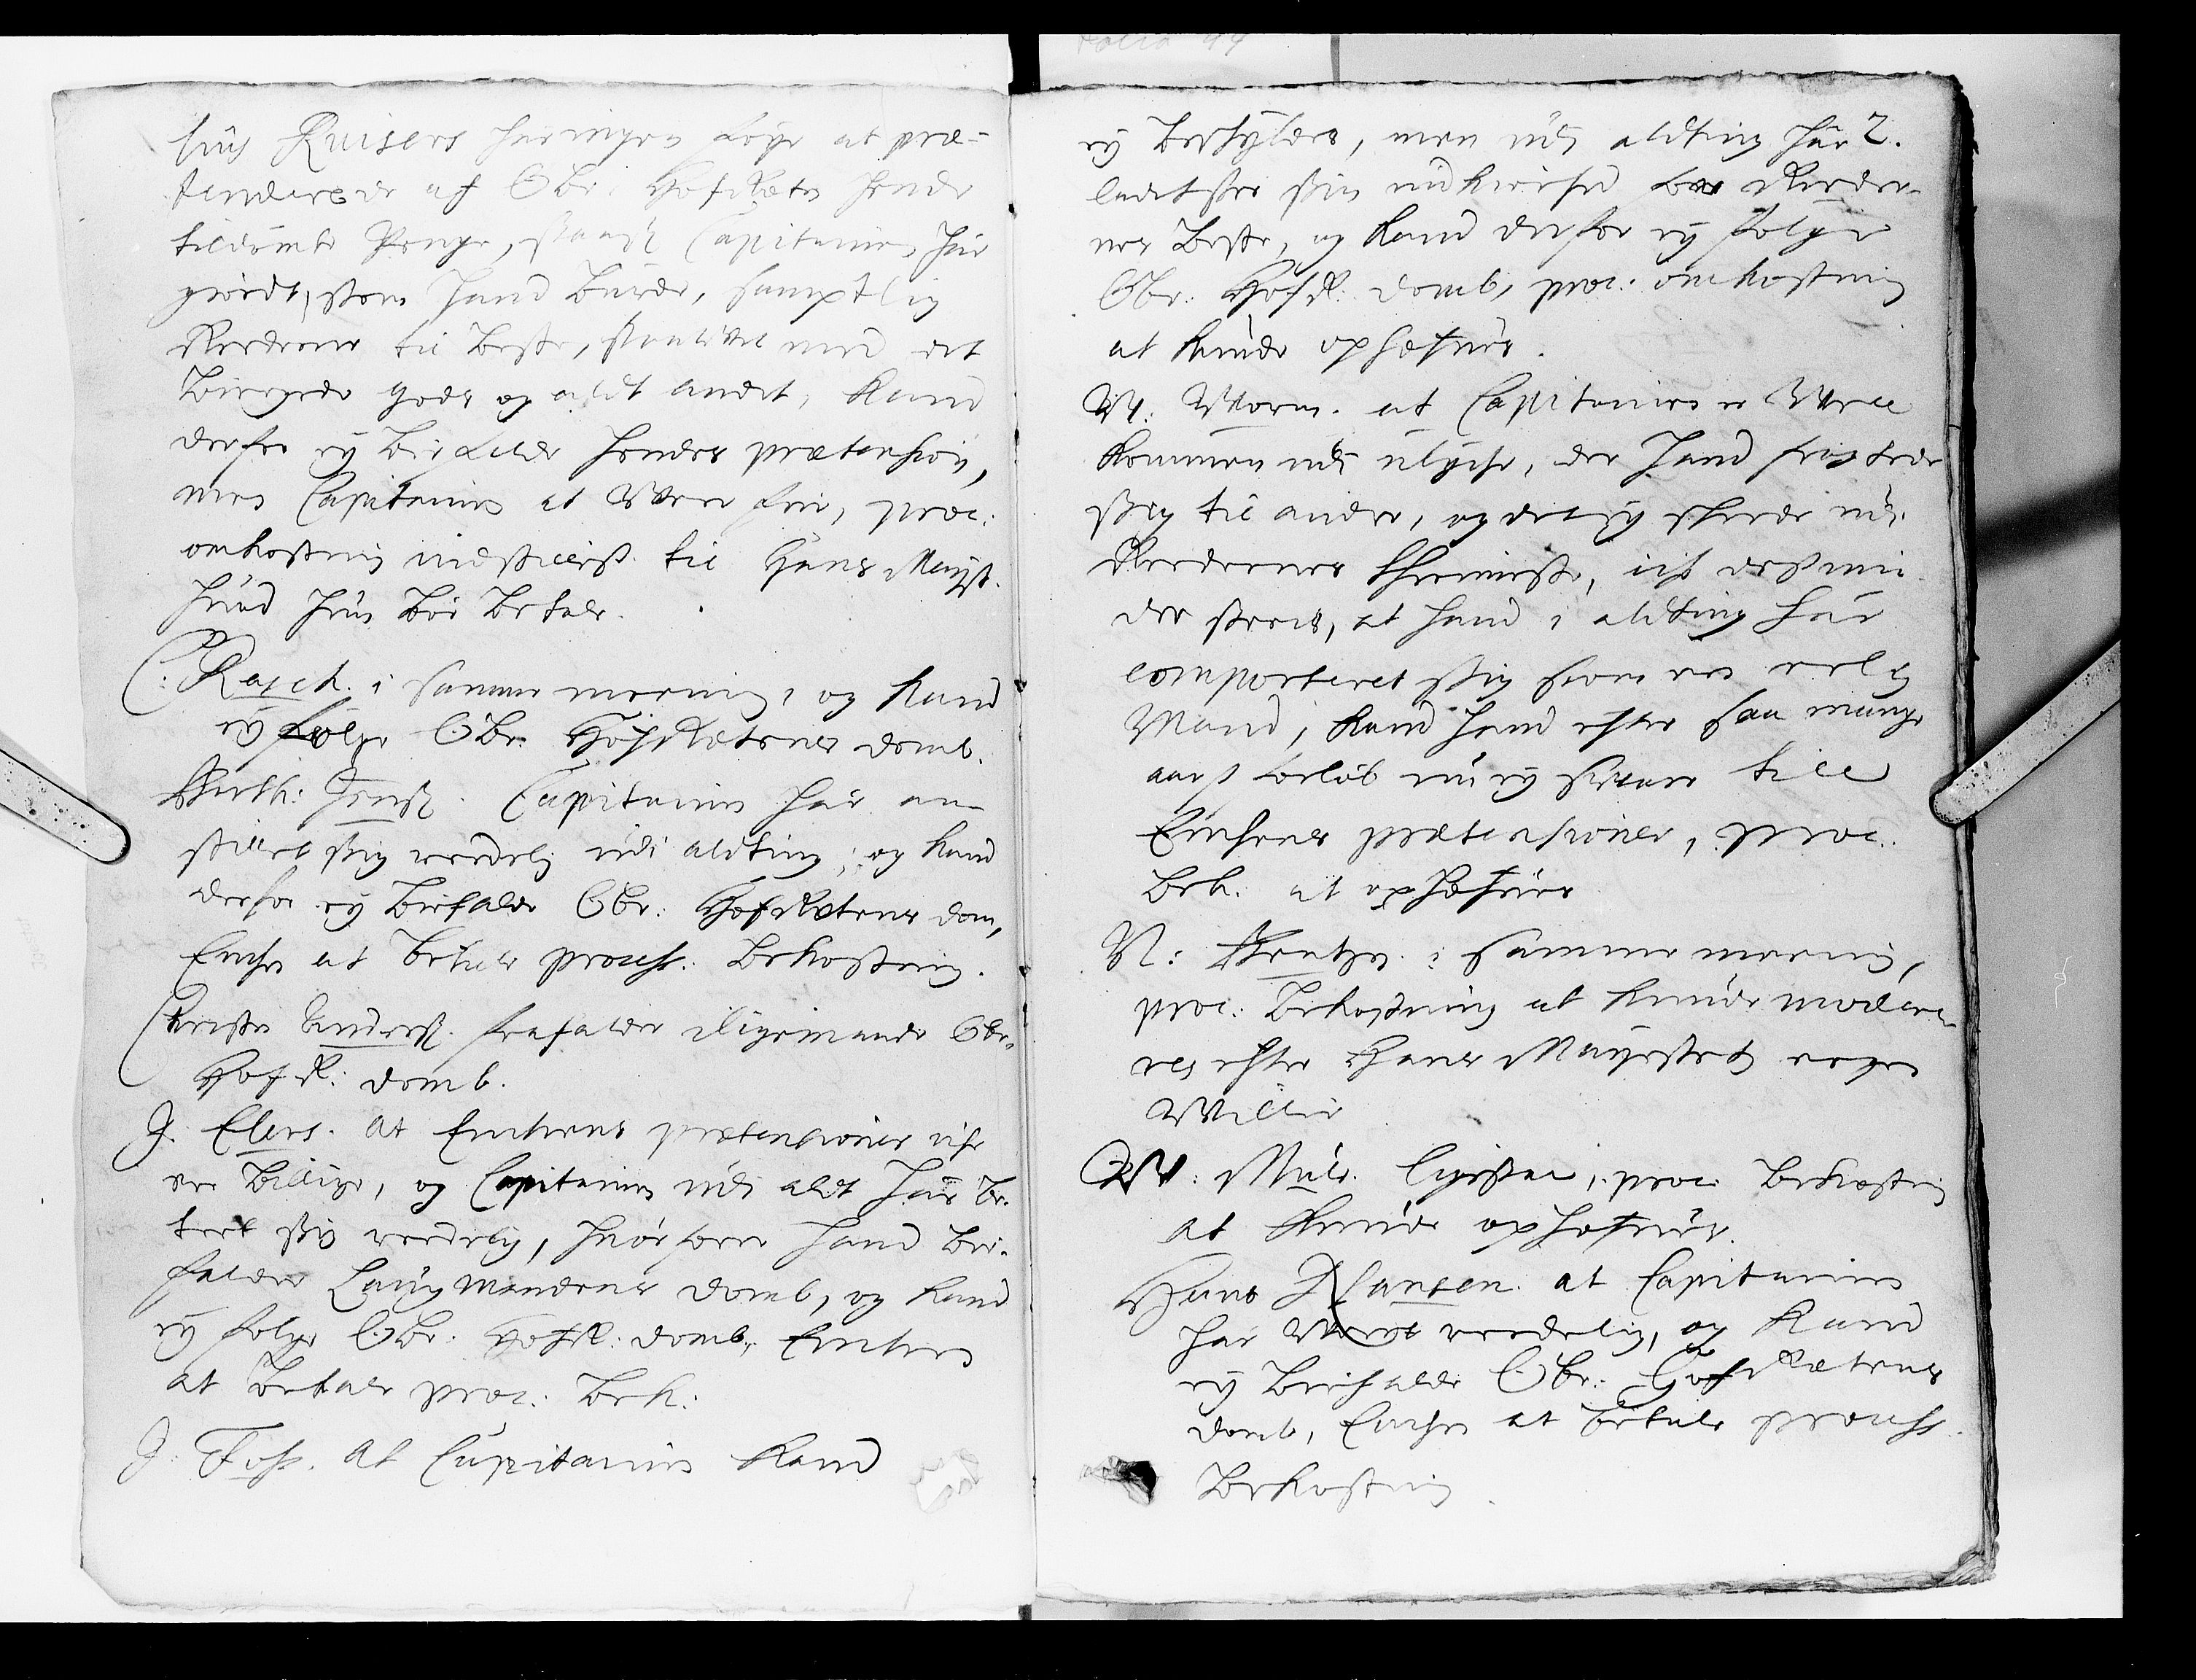 huus Kuisers har ingen føye at præ-
tendere de af Obr: HofRætn hende
tildømte Penge, saasom Capitainen har
giordt, som hand Burde, samptlig
Redernes til Beste, saavel med det
Biergede gods og aldt andet, kand
derfor ey Biefalde hendes prætension,
men Capitainen at Være frie, proc:
omkostning indstillis til Hans Mayst.
huad hun Bør Betale.
C: Rasch. i samme meening, og kand
ey følge Obr: HofRætenes domb.
Barth: Jensen. Capitainen har an
stillet sig reedelig udi alting, og kand
derfor ey Biefalde Obr: HofRætens dom,
Enchen at betale process: Bekostning.
Christen Andersen. frafalder iligemaade Obr.
HofR: domb.
J. Elers. at Enchens prætensioner iche
ere Billige, og Capitainen udi alt har Be-
teet sig reedelig, huorfore hand Bei-
falder Laugmandens domb, og kand
ey følge Obr: HofR: domb, Enchen
at Betale proc: Bek:
J: Foss. At Capitainen kand
folio 44
ey Beskyldes, men udi alting har 2.
ladet see sin nidkierhed for Reder-
nes Beste, og kand derfor ey følge
Obr: HofR: domb, proc: omkostning
at kunde ophæfues.
W: Worm. at Capitainen er Vell
kommen udi ulyche, der hand
sig til andre, og det ey skeede udi
Redernes tienneste, iche desmin-
der siunis, at hand i alting har
comporteret sig som en erlig
Mand, kand hand efter saa mange
aars forløb nu ey suare till
Enchens prætensioner, proc:
Bek: at ophæfues
N: i samme meening,
proc: Bekostning at kunde modere-
res efter Hans Mayestets egen
Villie
W: Mule. ligesaa, proc: Bekostning
at kunde ophæfues.
Hans Hansen. at Capitainen
har Været reedelig, og Kand
ey Beifalde Obr: HofRætens
domb, Enchen at betale process
Bekostning.